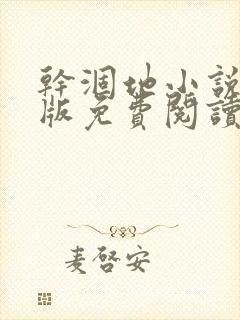 幹涸地小說
版免費閱讀
麦啓安